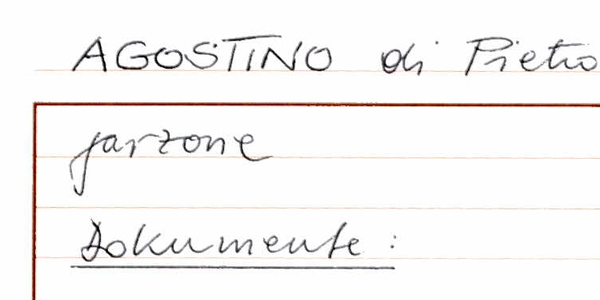 AGOSTINO di Pietro
garzone
Dokumente: